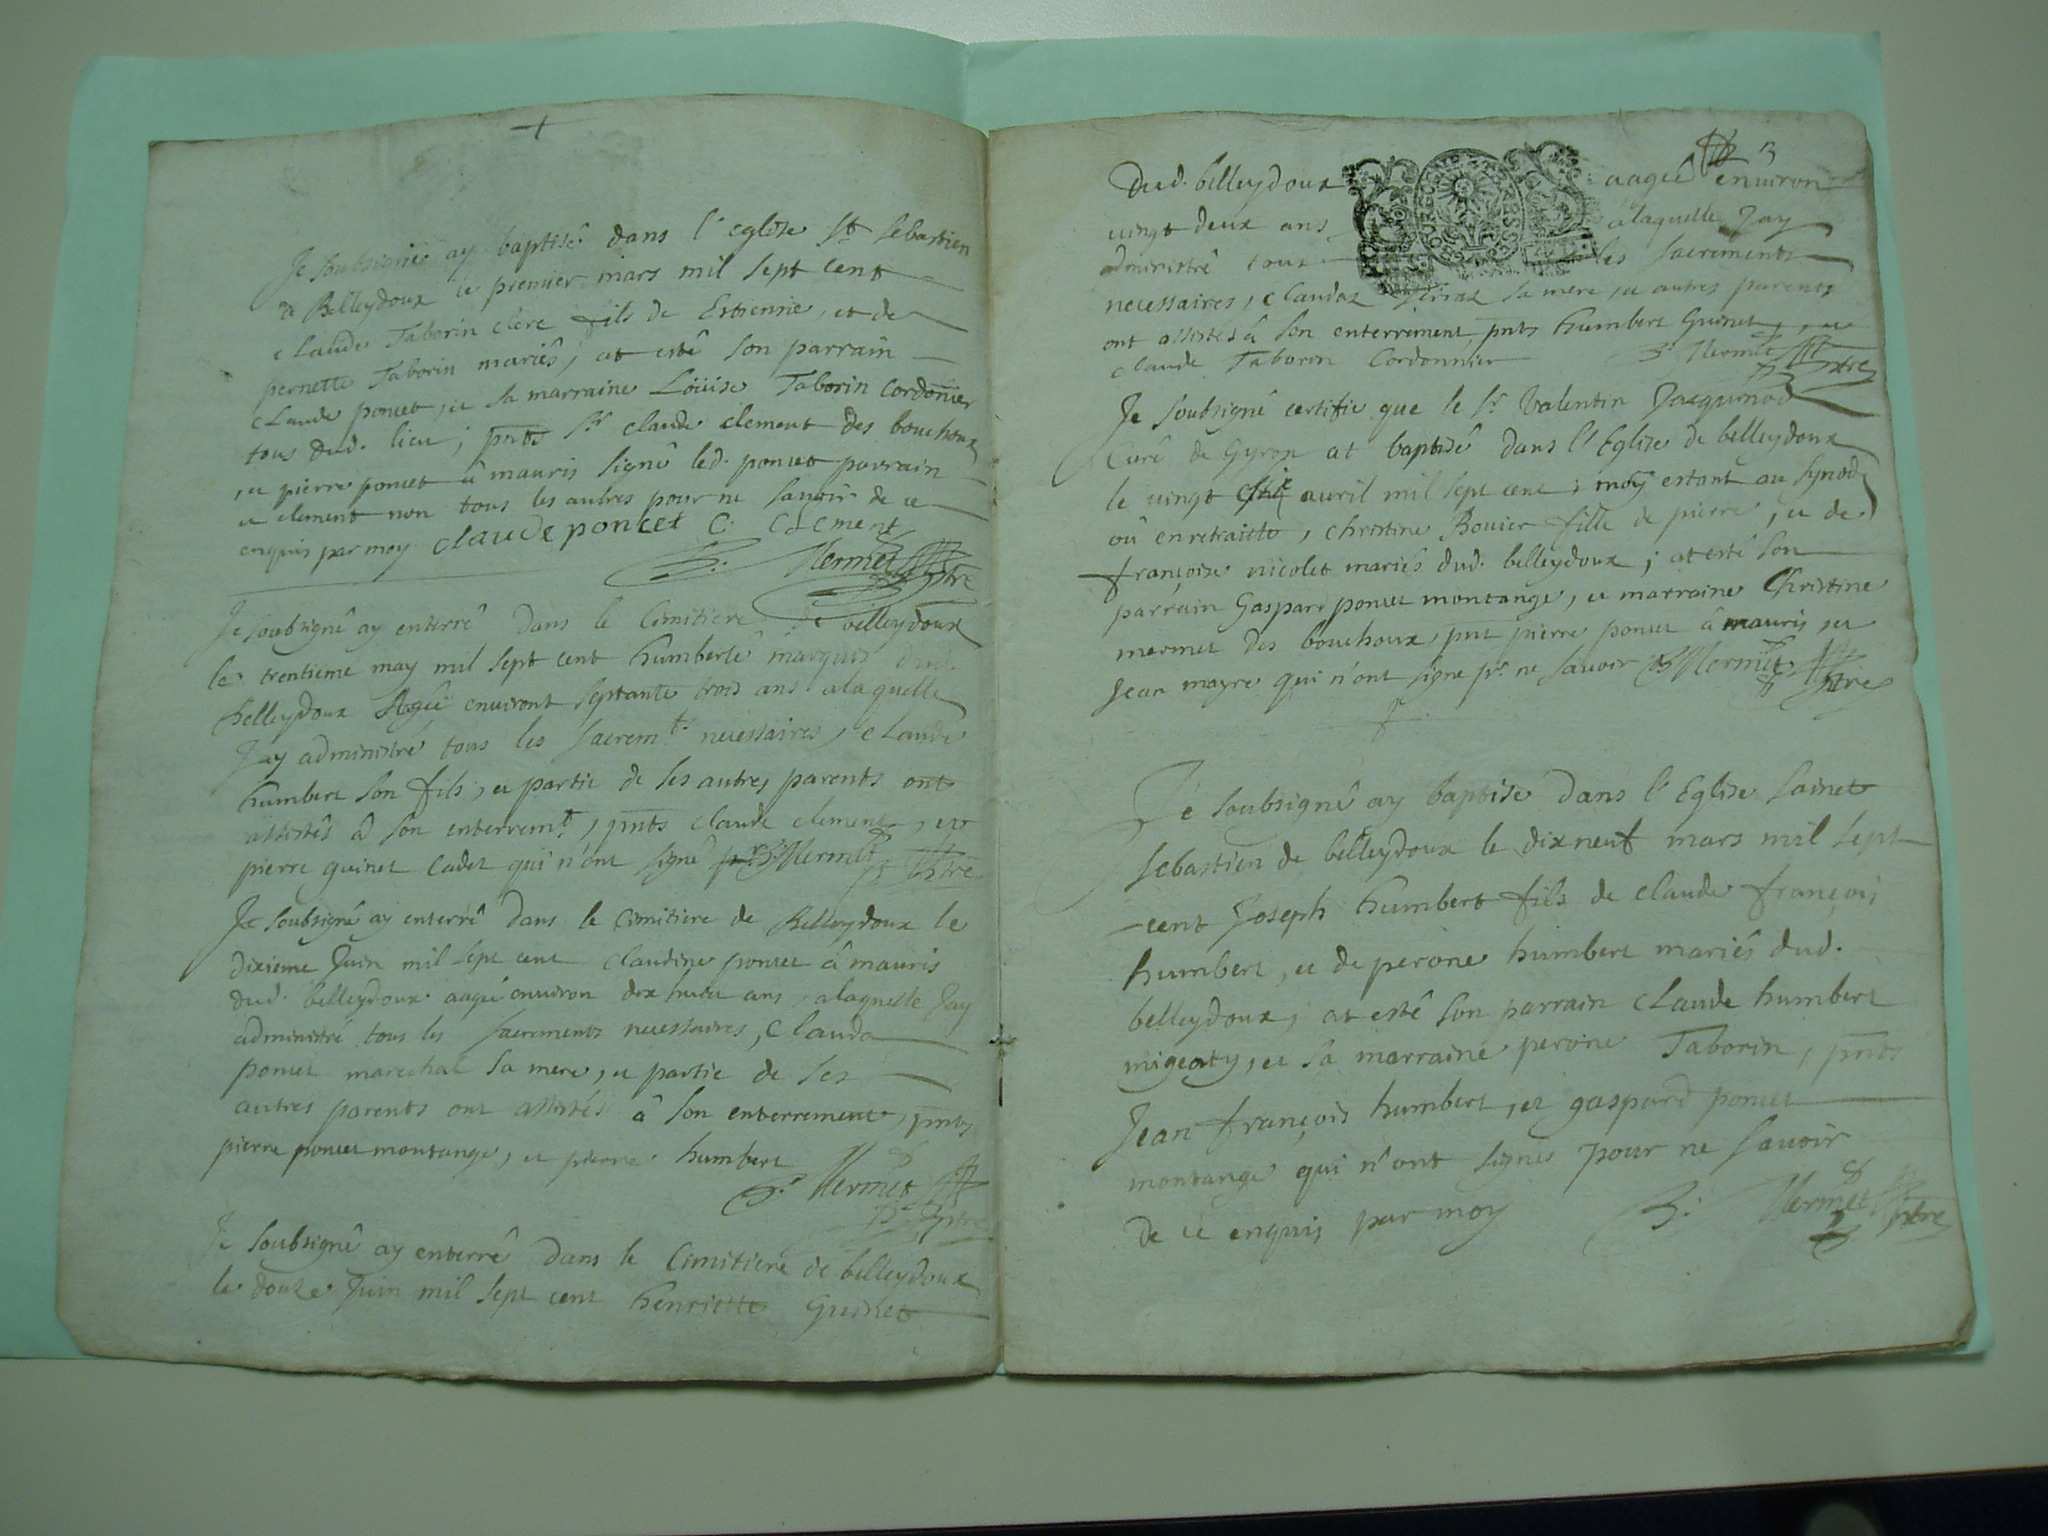 Je soubsigné ay baptisé dans l'eglise St Sebastien
de Belleydoux ce premier mars mil sept cent
claude Taborin clerc fils de Estienne, et de
pernette Taborin mariés, at esté son parrain
claude poncet, et sa marraine Loüise Taborin cordonier
tous dud. lieu, pnts Sr claude clement des bouchoux
et pierre poncet â mauris signé led. poncet parrain
et clement non tous les autres pour ne savoir de ce
enquis par moy claude poncet C. Clement
B. Mermet ptre
Je soubsigné ay enterré dans le Cimitiere de belleydoux
le trentieme may mil sept cent humberte marquis dud.
belleydoux Agée environt septante trois ans alaquelle
Jay administré tous les sacremts necessaires, claude
humbert son fils, et partie de ses autres parents ont
assistés â son enterremt, pnts claude clement, et
pierre guinet cadet qui n'ont signé B. Mermet ptre
Je soubsigné ay enterré dans le Cimitiere de Belleydoux le
dixieme Juin mil sept cent claudine poncet â mauris
dud. belleydoux aagée environ dix huict ans, alaquelle Jay
administré tous les sacrements necessaires, clauda
poncet marechal sa mere, et partie de ses
autres parents ont assistés â son enterrement, pnts
pierre poncet montange, et pierre humbert
B. Mermet
ptre
Je soubsigné ay enterré dans le Cimitiere de belleydoux
le douze Juin mil sept cent henriette Guinet
3
dud. belleydoux aagée environ
vingt deux ans alaquelle Jay
administré tous les sacrements
necessaires, claudaz sa mere, et autres parents
ont assistés â son enterrement pnts humbert Guinet, et
claude Taborin Cordonnier B. Mermet ptre
Je soubsigné certifie que le Sr Valentin Jacquinod
Curé de Gyron at baptisé dans l'Eglise de belleydoux
le vingt avril mil sept cent, moy estant au synode
oû en retraitte, christine Bouvier fille de pierre, et de
françoise nicolet mariés dud. belleydoux, at esté son
parrain Gaspard poncet montange, et marraine Christine
mermet des bouchoux pnt pierre poncet â mauris, et
Jean mayre qui n'ont signé pr ne savoir B. Mermet ptre
Je soubsigné ay baptisé dans l'Eglise Sainct
Sebastien de belleydoux le dixneuf mars mil sept
cent Joseph humbert fils de claude françois
humbert, et de perone humbert mariés dud.
belleydoux, at esté son parrain claude humbert
migeaty, et sa marraine perone Taborin, pnts
Jean françois humbert, et gaspard poncet
montange qui n'ont signés pour ne savoir
de ce enquis par moy B. Mermet ptre